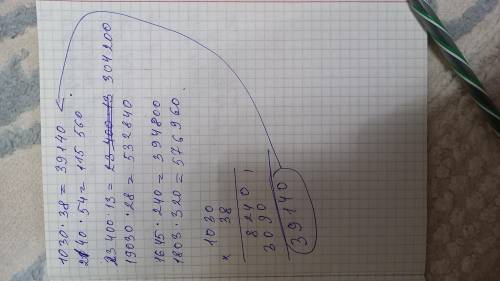 1030 · 38 = 39140
2140 · 54 = 115 560
23 400 · 13 = 23 400 · 13 304200
19030 · 28 = 532840
1645 · 240 = 394800
1803 · 320 = 576960.
1030
× 38
8240
3090
39140